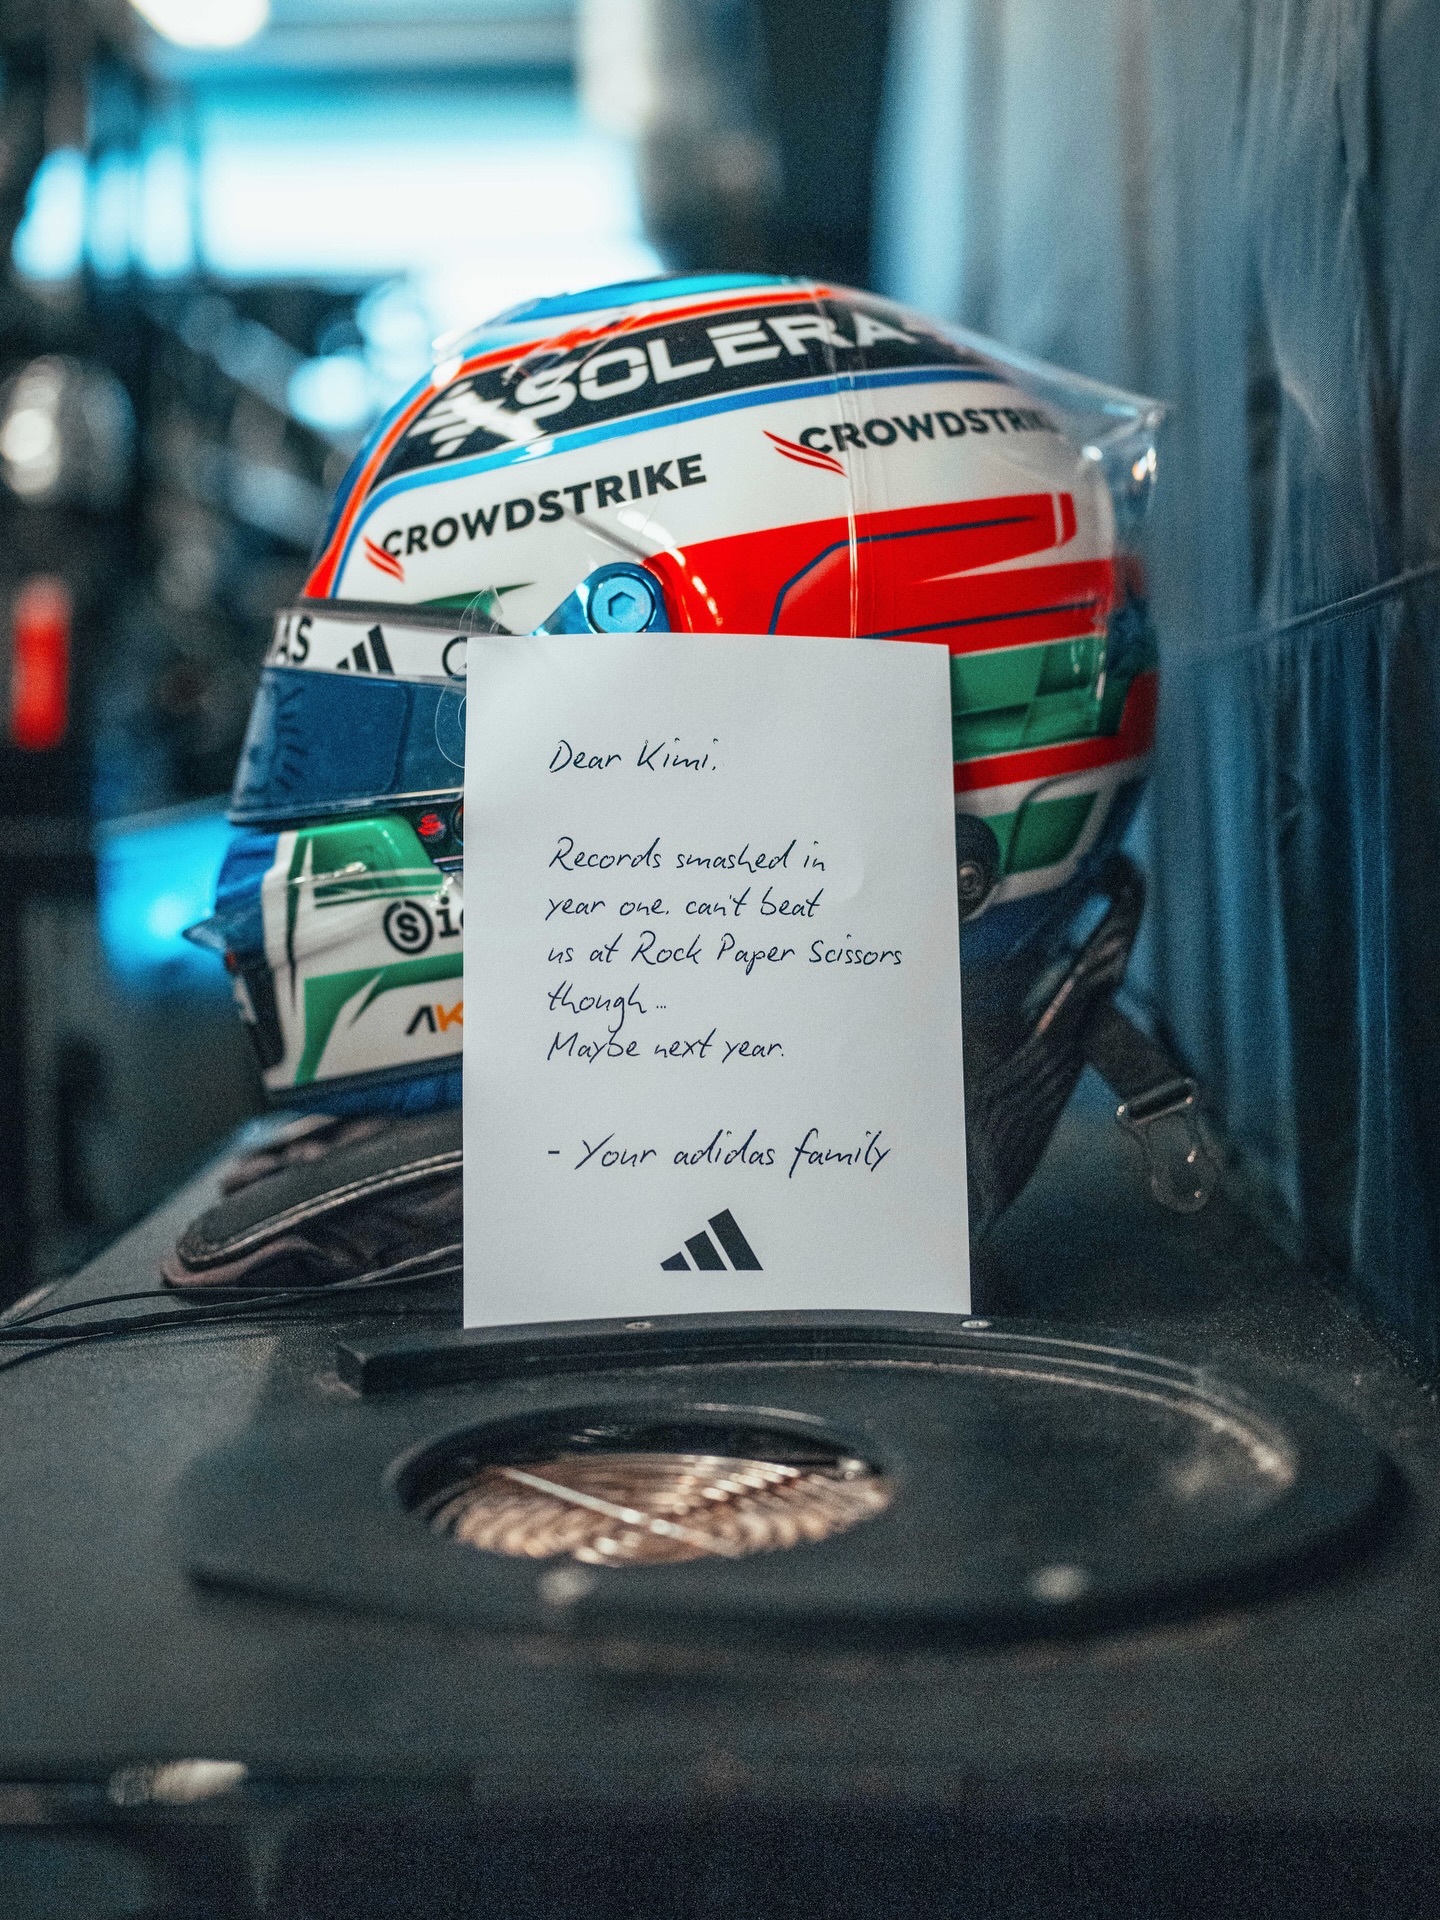 SOLERA
CROWDSTRIKE
CROWDSTRIKE
AS
Dear Kimi,
Records smashed in
year one. can't beat
us at Rock Paper Scissors
though...
Maybe next year.
- Your adidas family
S